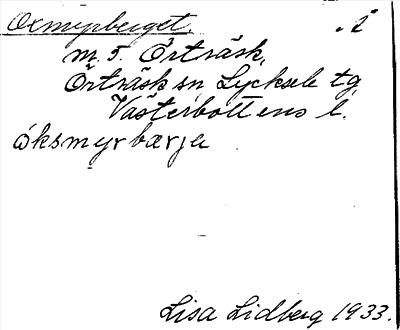 Oxmyrberget. Å
m. 5. Örträsk,
Örträsk sn, Lycksele tg,
Västerbottens l.
òksmyrbærje
Lisa Lidberg 1933.